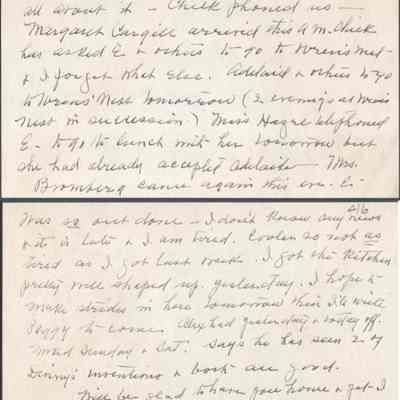 all about it — Chick phoned us —
Margaret Cargill arrived this a.m. Chick
has asked E & others to go to Wren's Nest
& I forget what else. Adelaid & others to go
to Wrens' Nest tomorrow (2 evenings at Wren's
Nest in succession) Miss Hazel telephoned
E. to go to lunch with her tomorrow but
she had already accepted Adelaide — Mrs.
Bromberg came again this eve. E.
2/6
was so out done — I don't know any news
& it is late & I am tired. Cooler so not as
tired as I got last week. I got the kitchen
pretty well shaped up yesterday. I hope to
make strides in here tomorrow then I'll write
Peggy to come. Alex had yesterday & today off.
Sunday & Sat. says he has seen 2 of
Denny's inventions & both are good.
Will be glad to have you home & get I